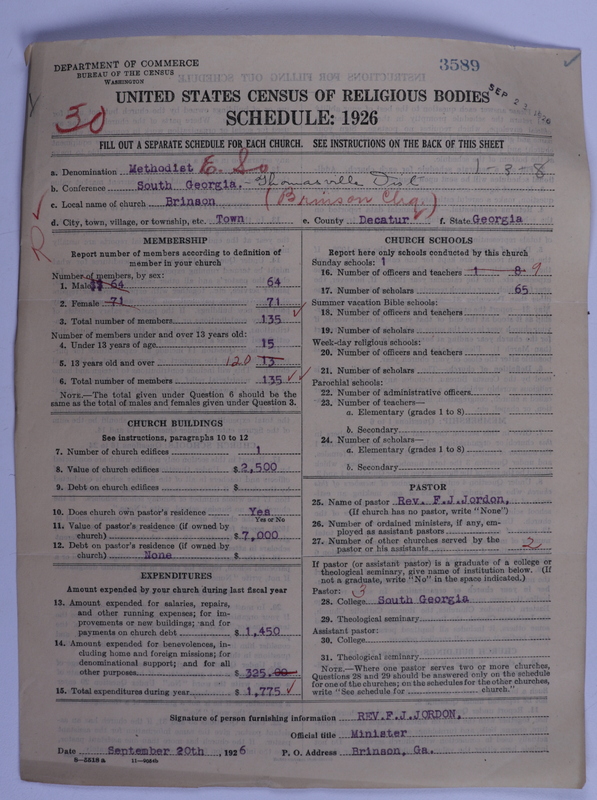 DEPARTMENT OF COMMERCE
BUREAU OF THE CENSUS
WASHINGTON
3589
SEP 23 1926
UNITED STATES CENSUS OF RELIGIOUS BODIES
SCHEDULE: 1926
30
FILL OUT A SEPARATE SCHEDULE FOR EACH CHURCH. SEE INSTRUCTIONS ON THE BACK OF THIS SHEET
a. Denomination Methodist E. So 1-3-8
b. Conference South Georgia,- Thomasville Dist
c. Local name of church Brinson (Brinson Chg.)
d. City, town, village, or township, etc. Town e. County Decatur f. State Georgia
R
MEMBERSHIP
Report number of members according to definition of member in your church
Number of members, by sex:
1. Male 64 64
2. Female 71 71
3. Total number of members 135
Number of members under and over 13 years old:
4. Under 13 years of age 15
5. 13 years old and over 120 13
6. Total number of members 135
NOTE.—The total given under Question 6 should be the same as the total of males and females given under Question 3.
CHURCH BUILDINGS
See instructions, paragraphs 10 to 12
7. Number of church edifices 1
8. Value of church edifices $2,500
9. Debt on church edifices $
10. Does church own pastor's residence Yes
Yes or No
11. Value of pastor's residence (if owned by church) $7,000
12. Debt on pastor's residence (if owned by church) None $
EXPENDITURES
Amount expended by your church during last fiscal year
13. Amount expended for salaries, repairs, and other running expenses; for improvements or new buildings; and for payments on church debt $ 1,450
14. Amount expended for benevolences, including home and foreign missions; for denominational support; and for all other purposes $ 325.00
15. Total expenditures during year $ 1,775
CHURCH SCHOOLS
Report here only schools conducted by this church
Sunday schools: 1
16. Number of officers and teachers 1 8 9
17. Number of scholars 65
Summer vacation Bible schools:
18. Number of officers and teachers
19. Number of scholars
Week-day religious schools:
20. Number of officers and teachers
21. Number of scholars
Parochial schools:
22. Number of administrative officers
23. Number of teachers—
a. Elementary (grades 1 to 8)
b. Secondary
24. Number of scholars—
a. Elementary (grades 1 to 8)
b. Secondary
PASTOR
25. Name of pastor Rev. F.J.Jordon,
(If church has no pastor, write "None")
26. Number of ordained ministers, if any, employed as assistant pastors
27. Number of other churches served by the pastor or his assistants 2
If pastor (or assistant pastor) is a graduate of a college or theological seminary, give name of institution below. (If not a graduate, write "No" in the space indicated.)
Pastor: 3
28. College South Georgia
29. Theological seminary
Assistant pastor:
30. College
31. Theological seminary
NOTE.—Where one pastor serves two or more churches, Questions 28 and 29 should be answered only on the schedule for one of the churches; on the schedules for the other churches, write "See schedule for church."
Signature of person furnishing information REV.F.J.JORDON,
Official title Minister
Date September 20th, 1926 P. O. Address Brinson, Ga.
8—5518a 11—9084b